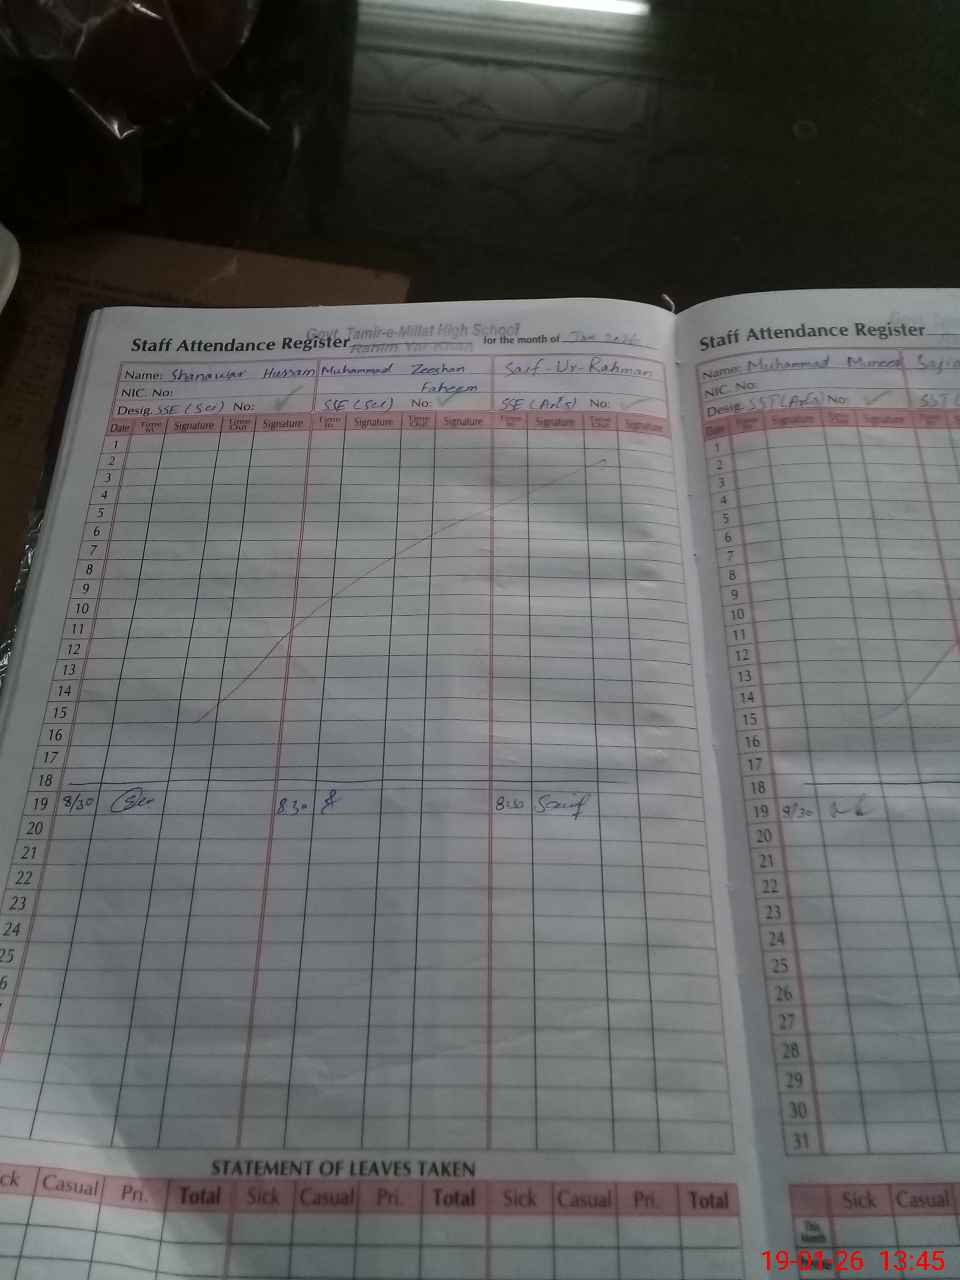 Govt. Tamir-e-Millat High School
Rahim Yar Khan
Staff Attendance Register for the month of Jan 2026
Name: Shanawar Hussain Muhammad Zeeshan Faheem Saif-Ur-Rahman
NIC. No:
Desig. SSE (Sci) No: SSE (Sci) No: SSE (Arts) No:
Date Time In Signature Time Out Signature Time In Signature Time Out Signature Time In Signature Time Out Signature
1
2
3
4
5
6
7
8
9
10
11
12
13
14
15
16
17
18
19 8/30 8.30 8:30 Saif
20
21
22
23
24
25
6
STATEMENT OF LEAVES TAKEN
ck Casual Pri. Total Sick Casual Pri. Total Sick Casual Pri. Total
Staff Attendance Register
Name: Muhammad Muneeb Sajid
NIC. No:
Desig. SST (Arts) No: SST (
Date Time In Signature Time Out Signature
1
2
3
4
5
6
7
8
9
10
11
12
13
14
15
16
17
18
19 8/30
20
21
22
23
24
25
26
27
28
29
30
31
Sick Casual
This Month
19-01-26 13:45